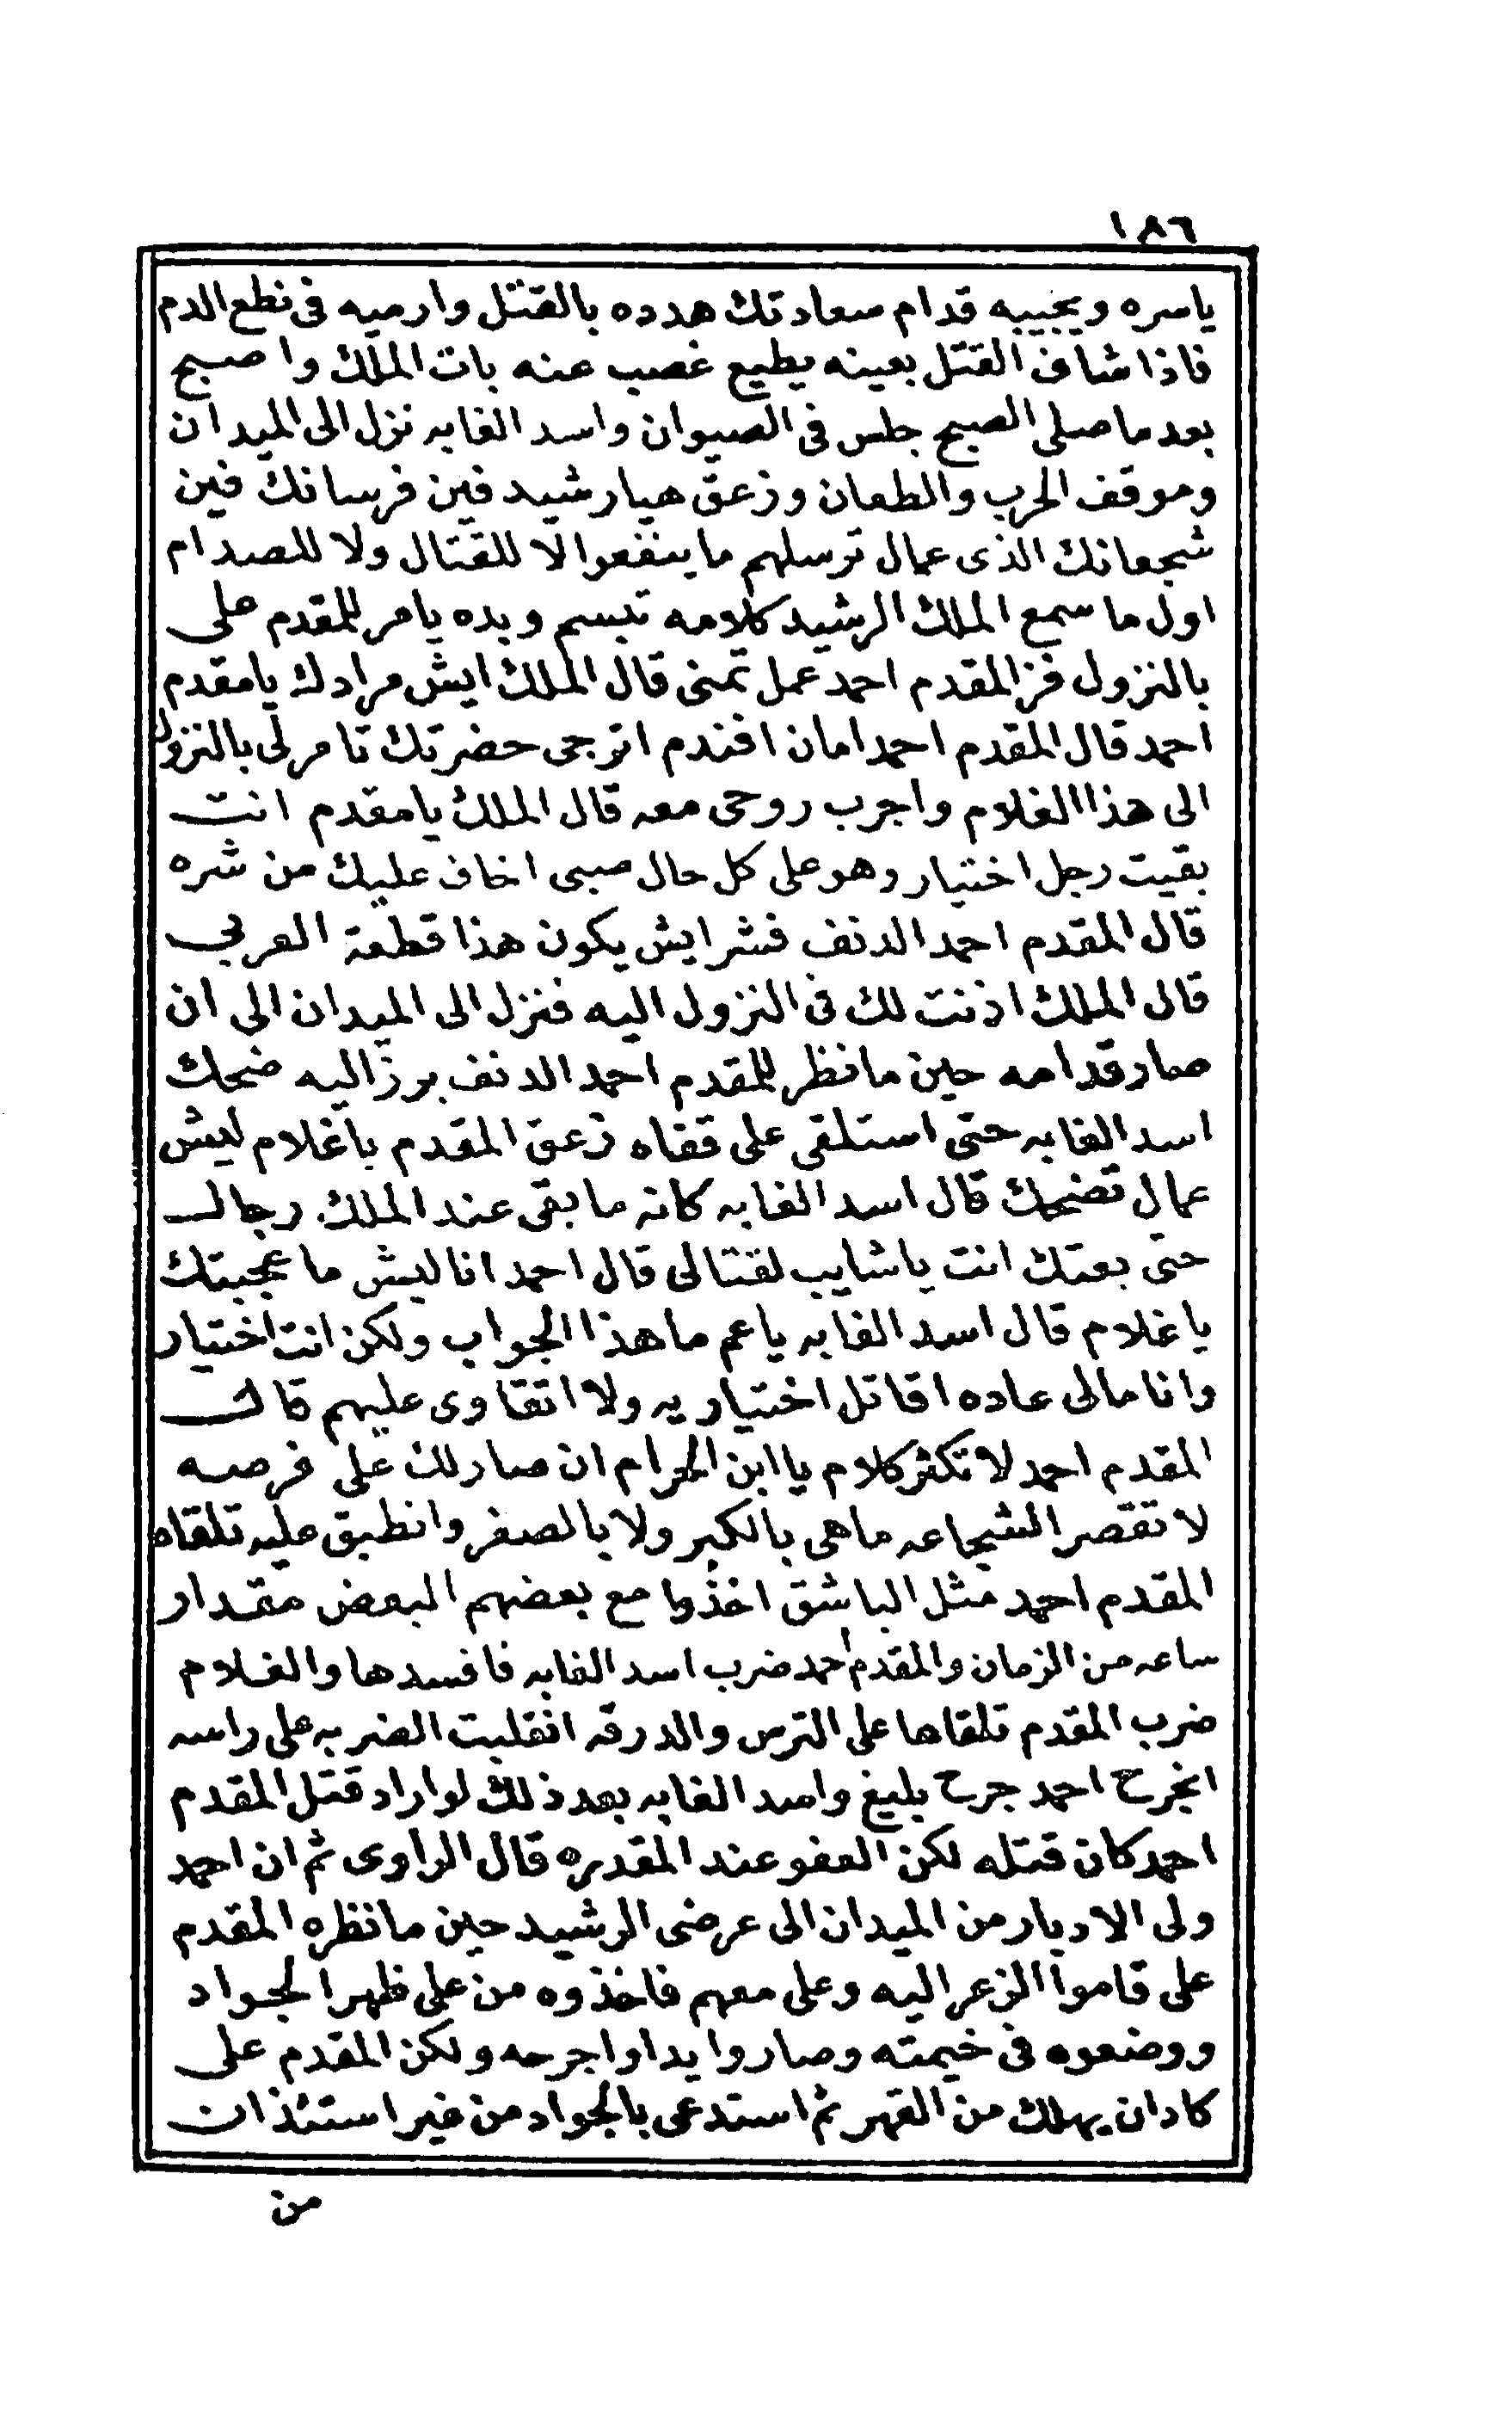 ١٨٦
ياسره ويجيبه قدام سعادتك هدده بالقتل وارميه فى نطع الدم
فاذا شاف القتل بعينه يطيع غصب عنه بات الملك واصبح
بعد ما صلى الصبح جلس فى الصيوان واسد الغابه نزل الى الميدان
وموقف الحرب والطعان وزعق هيا رشيد فين فرسانك فين
شجعانك الذى عمال ترسلهم ما ينفعوا لا للقتال ولا للصدام
اول ما سمع الملك الرشيد كلامه تبسم وبده يامر للمقدم على
بالنزول فز المقدم احمد عمل تمنى قال الملك ايش مرادك يا مقدم
احمد قال المقدم احمد امان افندم اترجى حضرتك تامر لى بالنزول
الى هذا الغلام واجرب روحى معه قال الملك يا مقدم انت
بقيت رجل اختيار وهو على كل حال صبى اخاف عليك من شره
قال المقدم احمد الدنف فشر ايش يكون هذا قطعة العربي
قال الملك اذنت لك فى النزول اليه فنزل الى الميدان الى ان
صار قدامه حين ما نظر للمقدم احمد الدنف برز اليه ضحك
اسد الغابه حتى استلقى على قفاه زعق المقدم يا غلام ليش
عمال تضحك قال اسد الغابه كانه ما بقى عند الملك رجال
حتى بعتك انت يا شايب لقتالى قال احمد انا ليش ما عجبتك
يا غلام قال اسد الغابه يا عم ما هذا الجواب ولكن انت اختيار
وانا مالى عاده اقاتل اختياريه ولا اتقاوى عليهم قال
المقدم احمد لا تكثر كلام يا ابن الحرام ان صار لك على فرصه
لا تقصر الشجاعه ماهى بالكبر ولا بالصغر وانطبق عليه تلقاه
المقدم احمد مثل الباشق اخذوا مع بعضهم البعض مقدار
ساعه من الزمان والمقدم احمد ضرب اسد الغابه فافسدها والغلام
ضرب المقدم تلقاها على الترس والدرقه انقلبت الضربه على راسه
انجرح احمد جرح بليغ واسد الغابه بعد ذلك لو اراد قتل المقدم
احمد كان قتله لكن العفو عند المقدره قال الراوى ثم ان احمد
ولى الادبار من الميدان الى عرضى الرشيد حين ما نظره المقدم
على قاموا الزعر اليه وعلى معهم فاخذوه من على ظهر الجواد
ووضعوه فى خيمته وصاروا يداوا جرحه ولكن المقدم على
كاد ان يهلك من القهر ثم استدعى بالجواد من غير استئذان
من